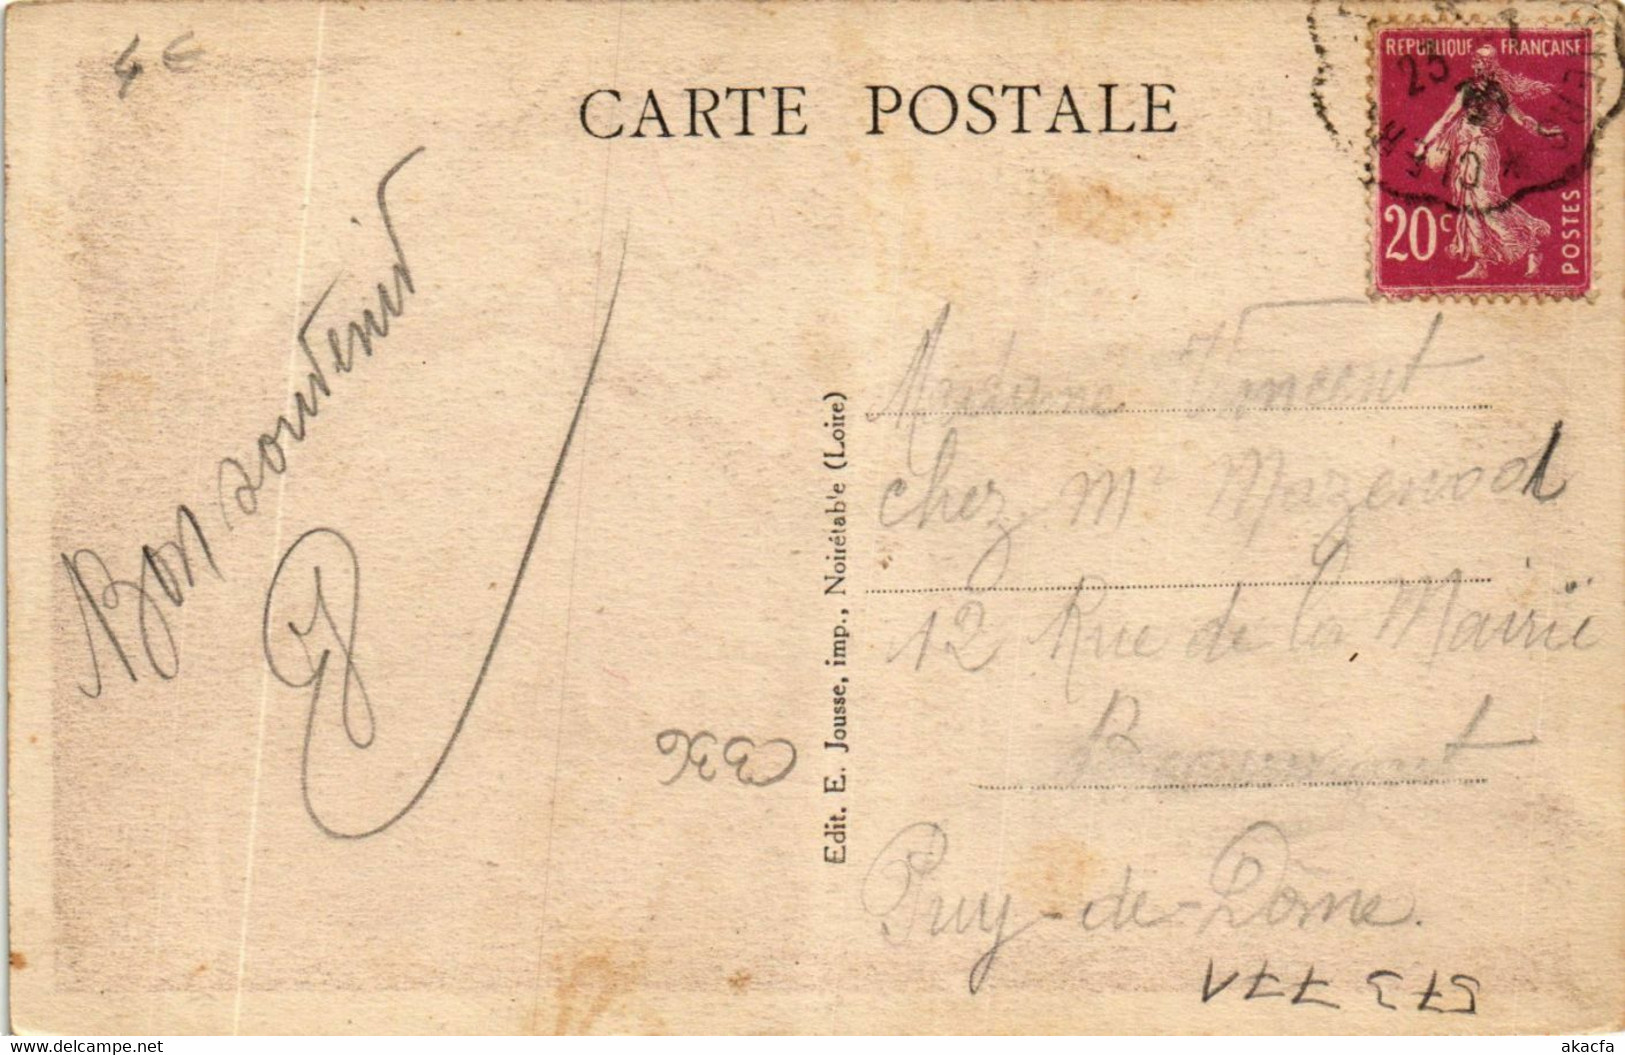 4€
CARTE POSTALE
REPUBLIQUE FRANÇAISE
20c
POSTES
25
CLER
Bon souvenir
Edit. E. Jousse, imp., Noirétable (Loire)
Madame Vincent
chez Mr Mazenod
12 Rue de la Mairie
Puy-de-Dôme.
C336
573 771
delcampe.net
akacfa